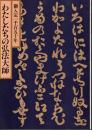 いろはにほへとちりぬるを
わかよたれそつねならむ
うゐのおくやまけふこえて
あさきゆめみしゑひもせす
御入定千百五十年
わたしたちの弘法大師